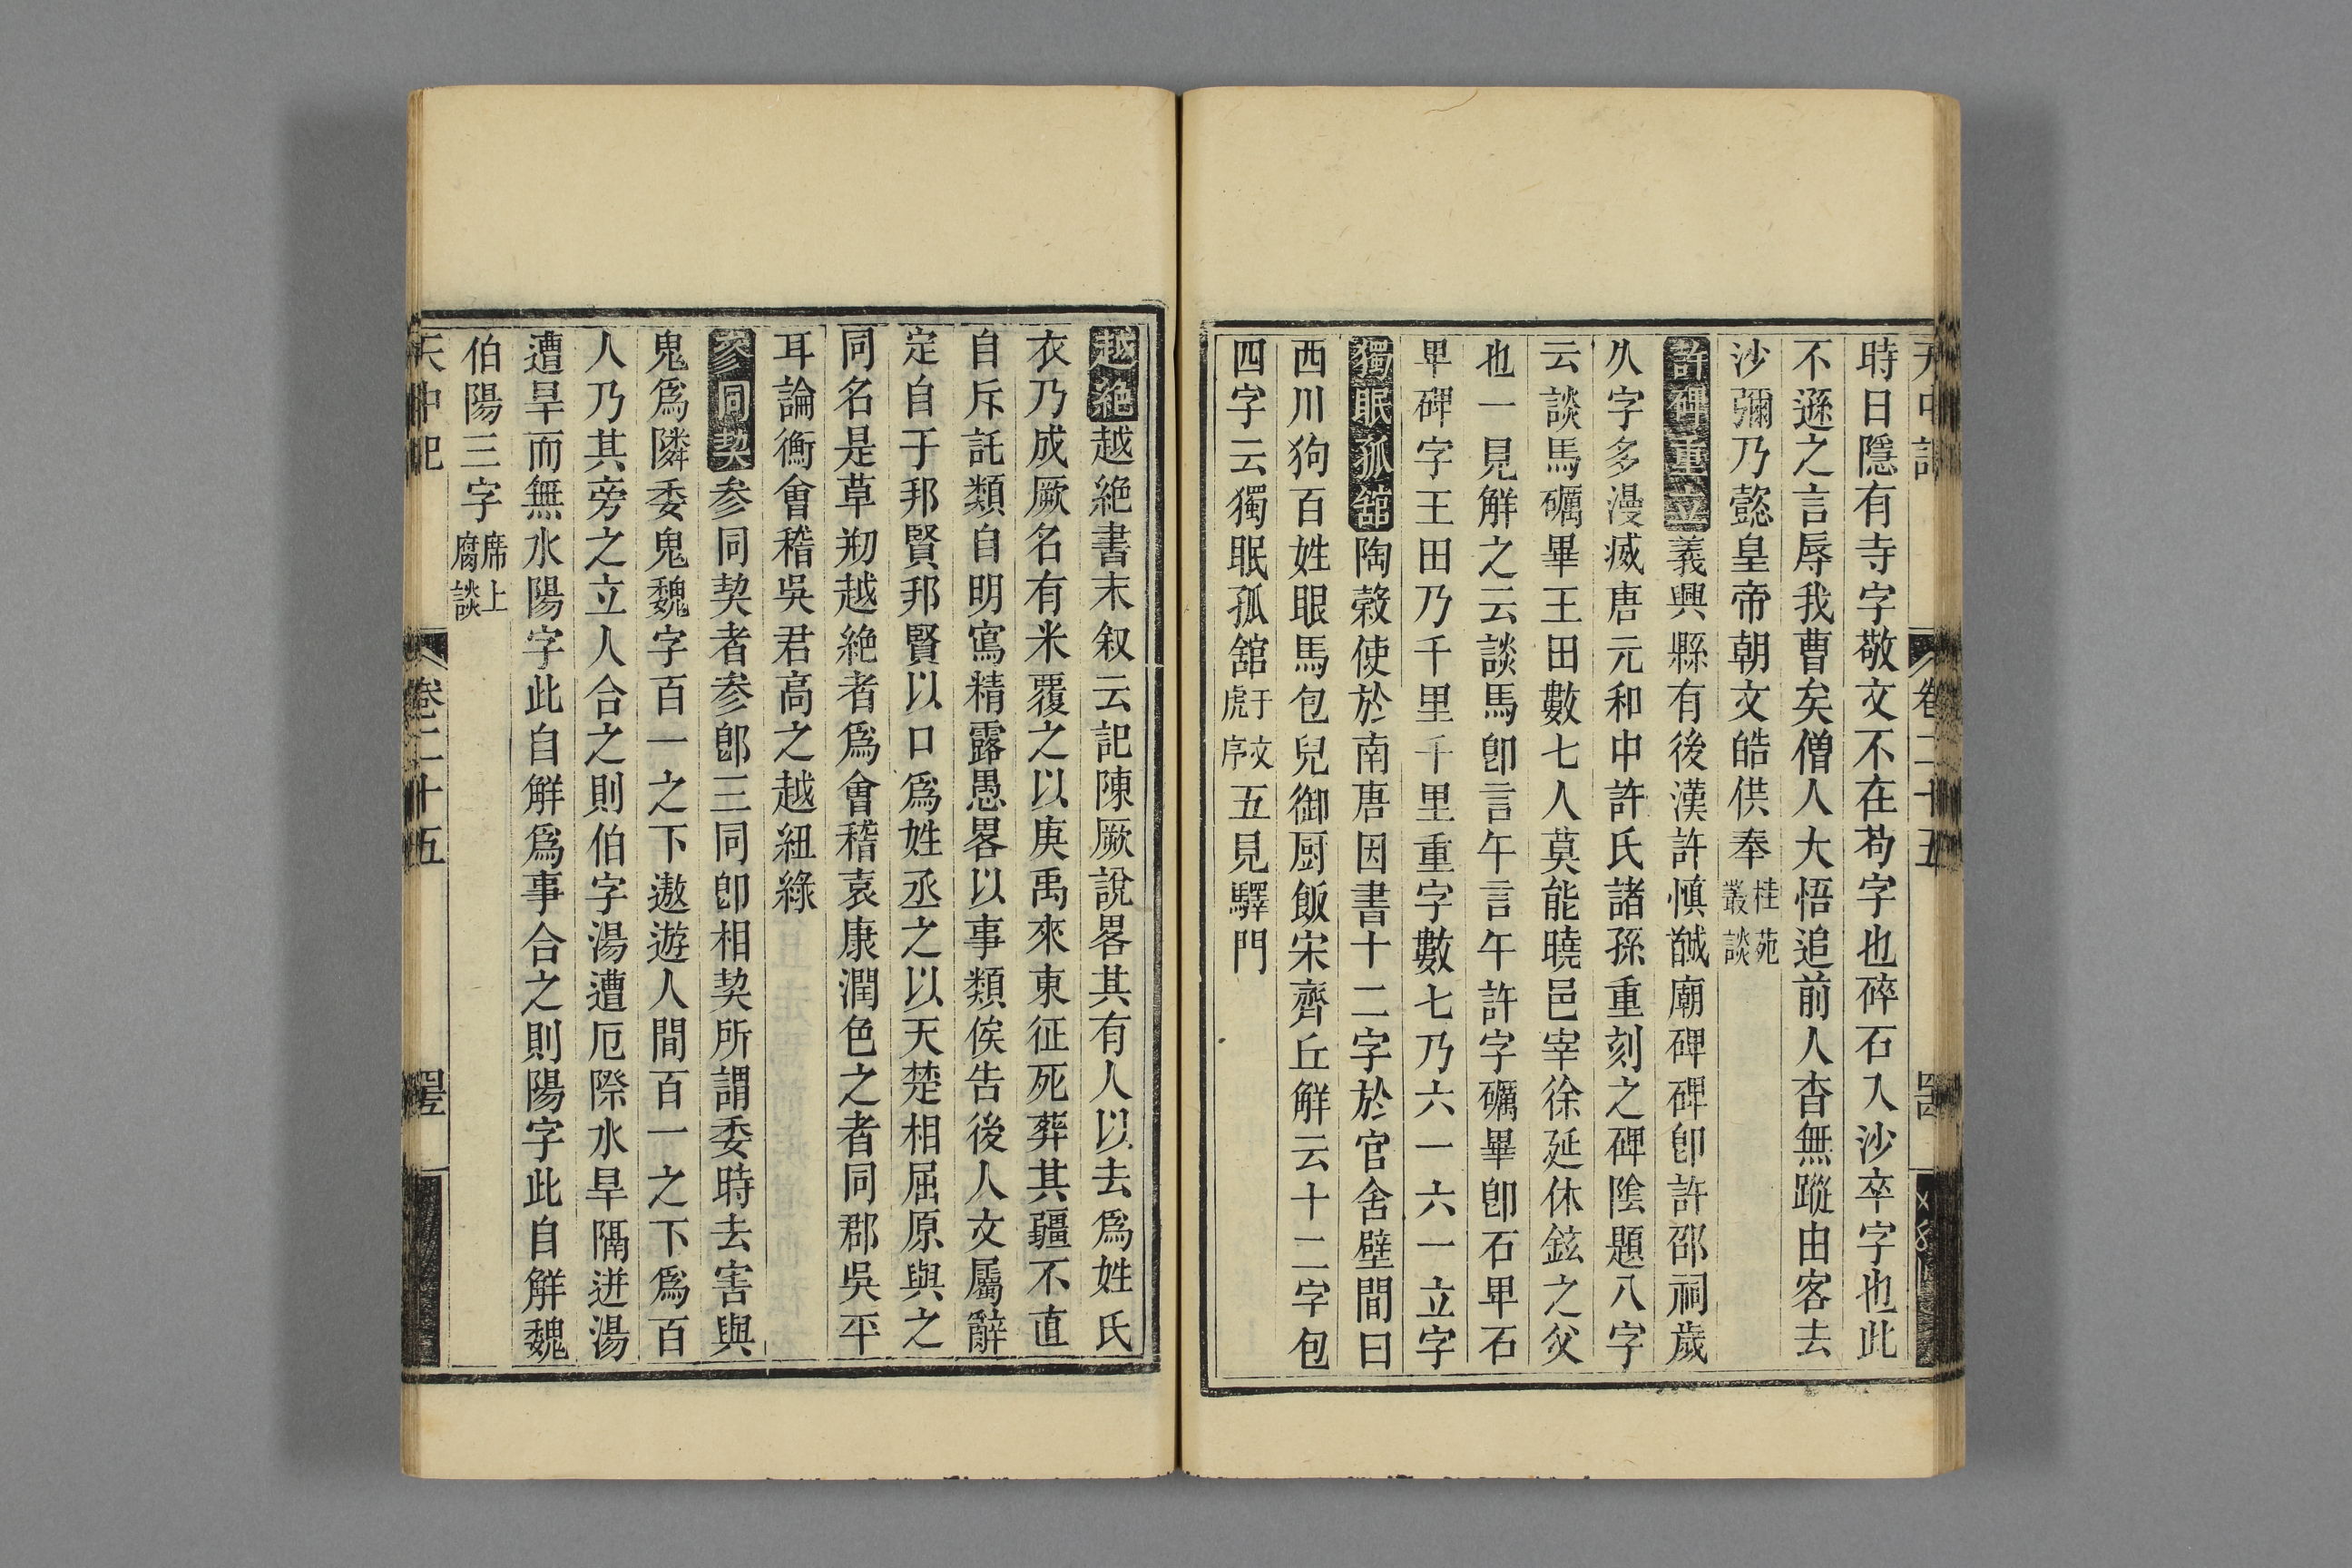 天中記 卷二十五
時日隱有寺字敬文不在苟字也碎石入沙卒字也此
不遜之言辱我曹矣僧人大悟追前人杳無蹤由客去
沙彌乃懿皇帝朝文皓供奉桂苑叢談
許碑重立義興縣有後漢許慎馘廟碑碑卽許邵祠歲
久字多漫滅唐元和中許氏諸孫重刻之碑陰題八字
云談馬礪畢王田數七人莫能曉邑宰徐延休鉉之父
也一見解之云談馬卽言午言午許字礪畢卽石卑石
卑碑字王田乃千里千里重字數七乃六一六一立字
獨眠孤舘陶穀使於南唐因書十二字於官舍壁間曰
西川狗百姓眼馬包兒御厨飯宋齊丘解云十二字包
四字云獨眠孤舘于文虎序五見驛門
越絶越絶書末叙云記陳厥說畧其有人以去爲姓氏
衣乃成厥名有米覆之以庚禹來東征死葬其疆不直
自斥託類自明寫精露愚畧以事類俟告後人文屬辭
定自于邦賢邦賢以口爲姓丞之以天楚相屈原與之
同名是草刱越絶者爲會稽袁康潤色之者同郡吳平
耳論衡會稽吳君高之越紐綠
參同契参同契者参卽三同卽相契所謂委時去害與
鬼爲隣委鬼魏字百一之下遨遊人間百一之下爲百
人乃其旁之立人合之則伯字湯遭厄際水旱隔迸湯
遭旱而無水陽字此自解爲事合之則陽字此自解魏
伯陽三字席上腐談
天中記 卷二十五